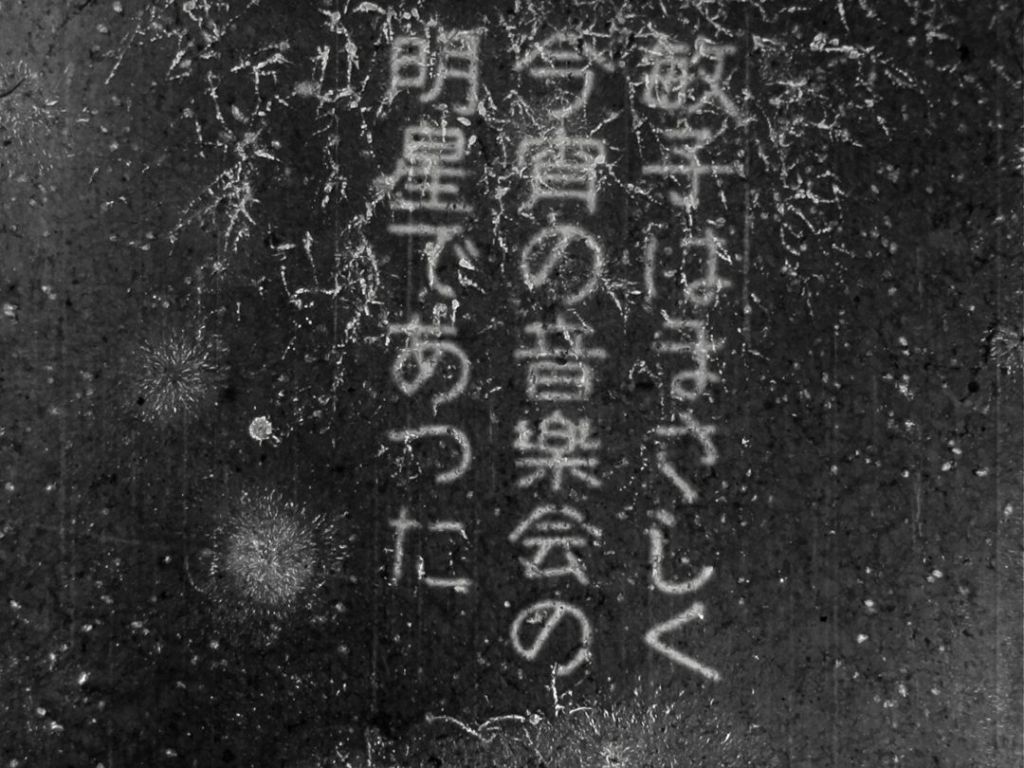 敏子はまさしく
今宵の音楽会の
明星であった